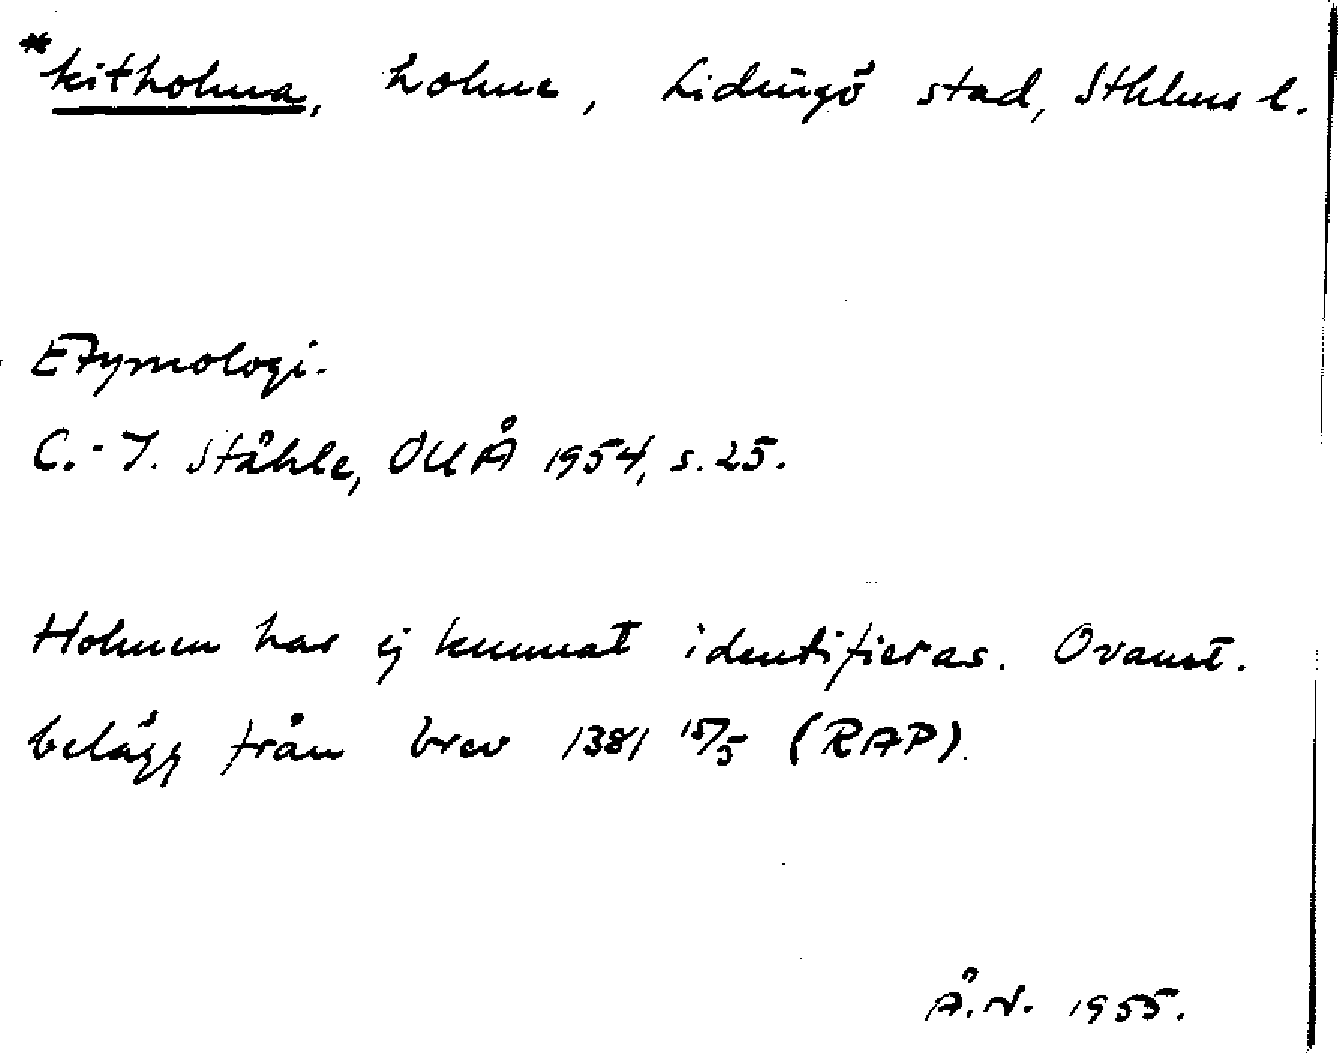 *kitholma, holme, Lidingö stad, Sthlms l.
Etymologi.
C.-I. Ståhle, OUÅ 1954, s. 25.
Holmen har ej kunnat identifieras. Ovanst.
belägg från brev 1381 15/5 (RAP).
Å.N. 1955.